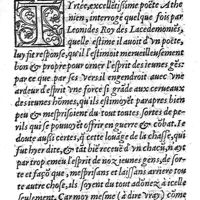 TYrtée, excellētissime poëte Athe
nien, interrogé quelque fois par
Leonides Roy des Lacedemoniēs,
quelle estime il auoit d'vn poëte,
luy fit response, qu'il l'estimoit merueilleusement
bon & propre pour orner l'esprit des ieunes gēs:
par ce que par ses vers il engendroit auec vne
ardeur d'esprit vne force si grāde aux cerueaux
des ieunes hōmes, qu'ils estimoyēt par apres bien
peu & mesprisoient du tout toutes sortes de pe-
rils qui se pouuoyēt offrir en guerre & cōbat. Ie
doute tout certes, si cette louange de la chasse, qui
fut hyer dite, & tāt biē receuë d'vn chacū, n'aye
par trop emeu l'esprit de noz ieunes gens, de sor-
te et façō que, mesprisans et laissans arriere tou-
te autre chose, ils soyent du tout adōnez à icelle
seulement. Car moy mesme (à dire vray) comme